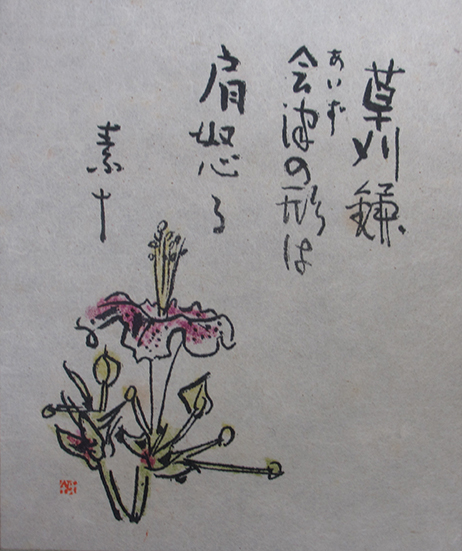 草刈鎌
会津の形は
あいず
肩怒る
素十